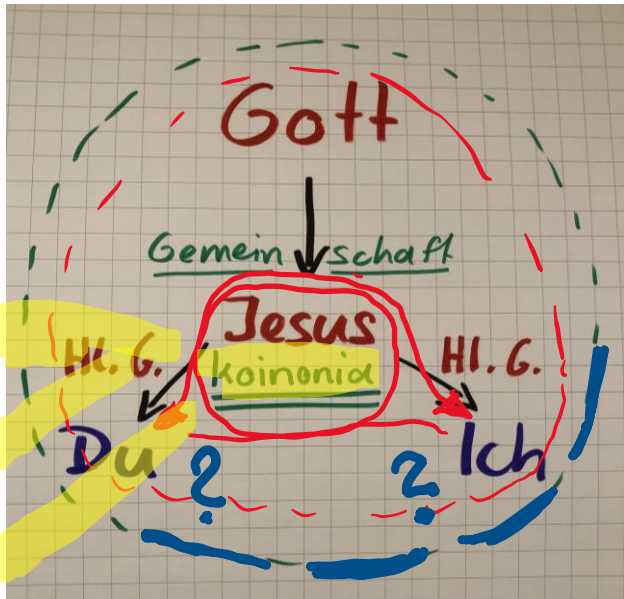 Gott
Gemeinschaft
Jesus
Hl. G. Hl. G.
koinonia
Du ? ? Ich